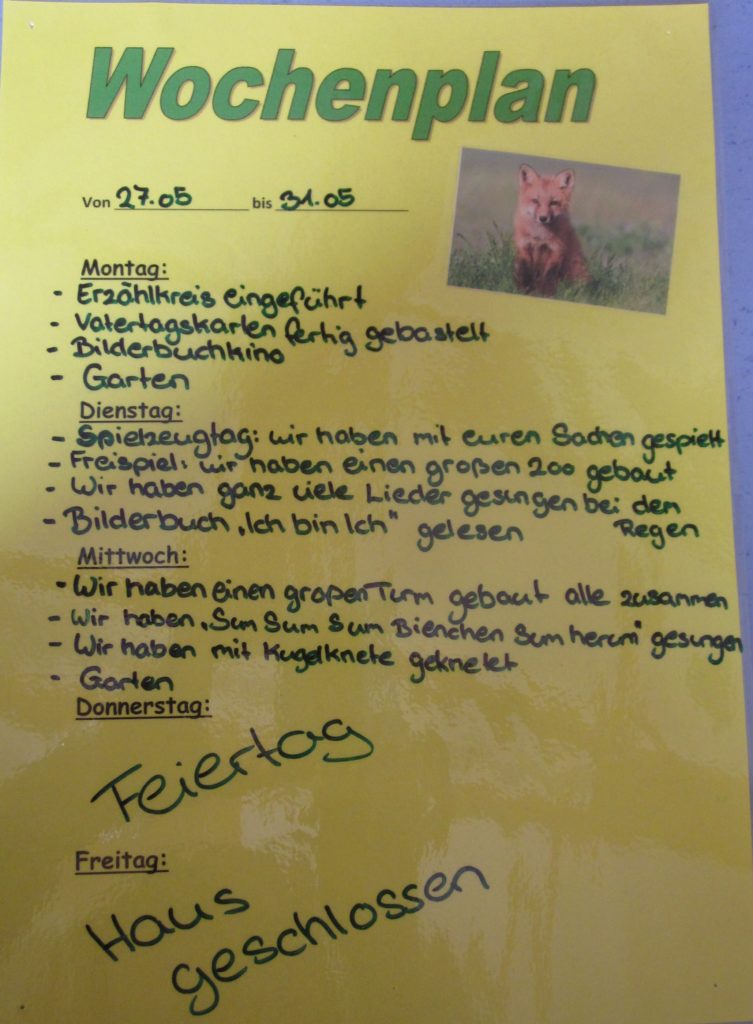 Wochenplan
Von 27.05 bis 31.05
Montag:
- Erzählkreis eingeführt
- Vatertagskarten fertig gebastelt
- Bilderbuchkino
- Garten
Dienstag:
- Spielzeugtag: wir haben mit euren Sachen gespielt
- Freispiel: wir haben einen großen Zoo gebaut
- Wir haben ganz viele Lieder gesungen bei den
Regen
- Bilderbuch „Ich bin Ich" gelesen
Mittwoch:
- Wir haben einen großen Turm gebaut alle zusammen
- Wir haben „Sum Sum Sum Bienchen Sum herum" gesungen
- Wir haben mit Kugelknete geknetet
- Garten
Donnerstag:
Feiertag
Freitag:
Haus
geschlossen